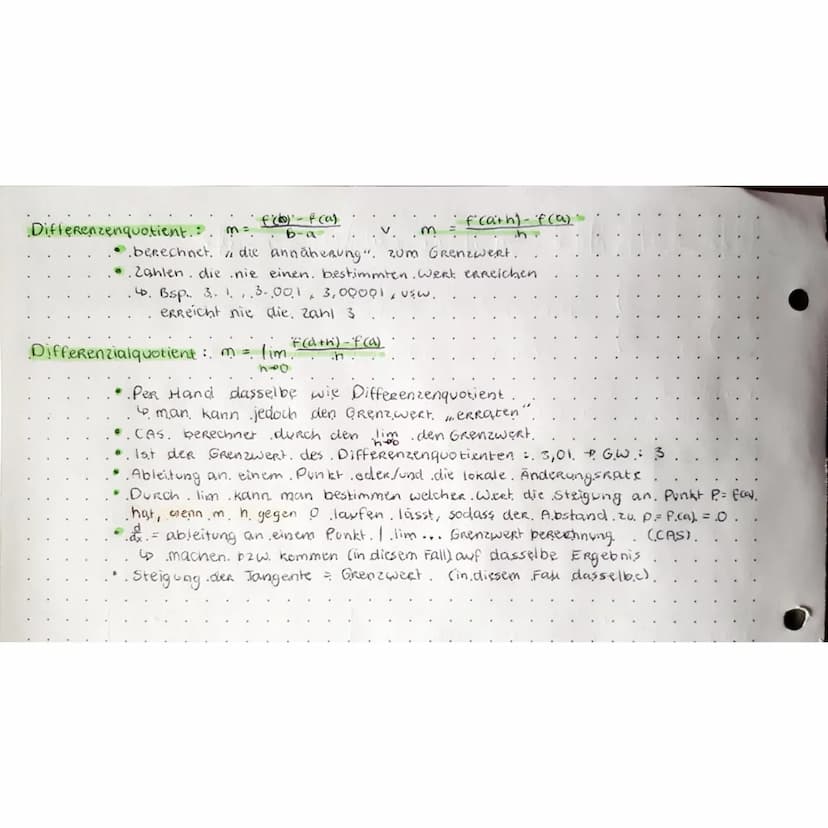 Differenzenquotient: m = f(b) - f(a) / b-a v m = f(a+h) - f(a) / h
• berechnet „die annäherung" zum Grenzwert
• Zahlen die nie einen bestimmten Wert erreichen
↳ Bsp 3,1, 3,001, 3,00001, usw.
erreicht nie die Zahl 3
Differenzialquotient: m = lim h→0 f(a+h) - f(a) / h
• Per Hand dasselbe wie Differenzenquotient
↳ man kann jedoch den Grenzwert „erraten"
• CAS berechnet durch den lim h→0 den Grenzwert
• Ist der Grenzwert des Differenzenquotienten: 3,01 → G.W.: 3
• Ableitung an einem Punkt oder/und die lokale Änderungsrate
• Durch lim kann man bestimmen welcher Wert die Steigung an Punkt P=
hat, wenn m h gegen 0 laufen lässt, sodass der Abstand zu P = P(a) = 0
• d/dx = ableitung an einem Punkt | lim... Grenzwert berechnung (CAS)
↳ machen bzw. kommen (in diesem Fall) auf dasselbe Ergebnis
• Steigung der Tangente = Grenzwert (in diesem Fall dasselbe)